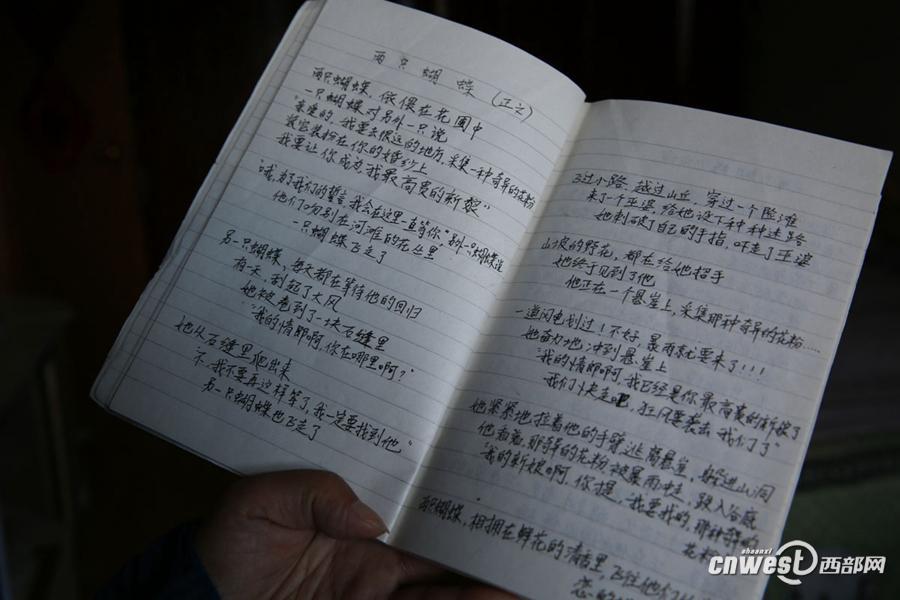 两只蝴蝶
(正文)
两只蝴蝶，依偎在花圃中
一只蝴蝶对另外一只说
"亲爱的，我要去很远的地方，采集一种奇异的花粉
装它装扮在你的婚纱上
我要让你成为，我最高贵的新娘"
"哦，为了我们的誓言，我会在这里一直等你"另外一只蝴蝶说
他们吻别在河滩的花丛里
一只蝴蝶飞走了
另一只蝴蝶，每天都在等待他的回归
有天，刮起了大风
她被卷到了一块石缝里
"我的情郎啊，你在哪里啊？"
她从石缝里爬出来
"不，我不要再这样等了，我一定要找到他"
另一只蝴蝶也飞走了
过小路，越过山丘，穿过一个险滩
来了一个巫婆，给她设下种种迷路
她刺破了自己的手指，吓走了巫婆
山坡的野花，都在给她招手
她终于见到了他
他正在一个悬崖上，采集那种奇异的花粉……
一道闪电划过！不好，暴雨就要来了!!!
她奋力地，冲到悬崖上
"我的情郎啊，我已经是你最高贵的新娘了
我们快走吧，狂风要袭去我们了"
她紧紧地拉着他的手臂逃离悬崖，躲进山洞
他看着，那奇异的花粉被暴雨
跌入谷底
"我的新娘啊，你
我要找的，那种奇异的
花粉
两只蝴蝶，相拥在鲜花的清香里飞往他们
恋的
shaanxi
cnwest 西部网